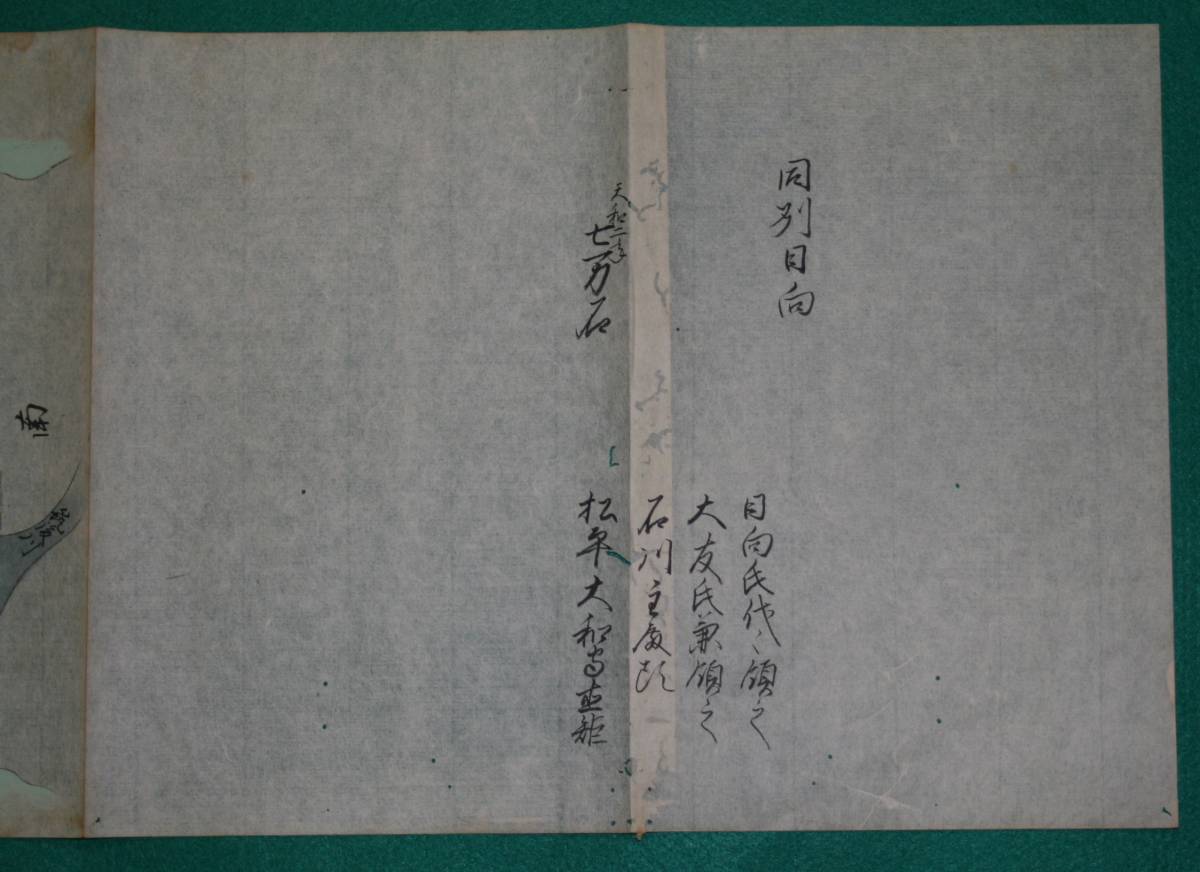 同別日向
日向氏代々領之
大友氏兼領之
石川主殿頭
天和二年
七万石
松平大和守直矩
南
筑後川